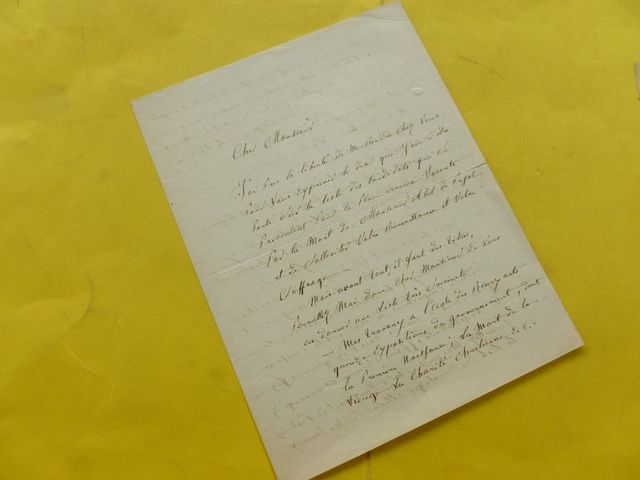 Cher Monsieur
J'ai pris la liberté de me rendre chez vous
pour vous exprimer le désir que j'ai d'être
porté sur la liste des candidats qui se
présentent pour la place devenue vacante
par la mort de Monsieur Abel de Pujol
et de solliciter votre bienveillance et votre
Suffrage
Mais avant tout, il faut des titres,
Permettez Moi donc Cher Monsieur de vous
en donner une liste très succincte
— Mes travaux à l'école des Beaux arts
quinze expositions du gouvernement, dont
la Première Naissance; La Mort de la
Vierge La Charité Chrétienne E. E.